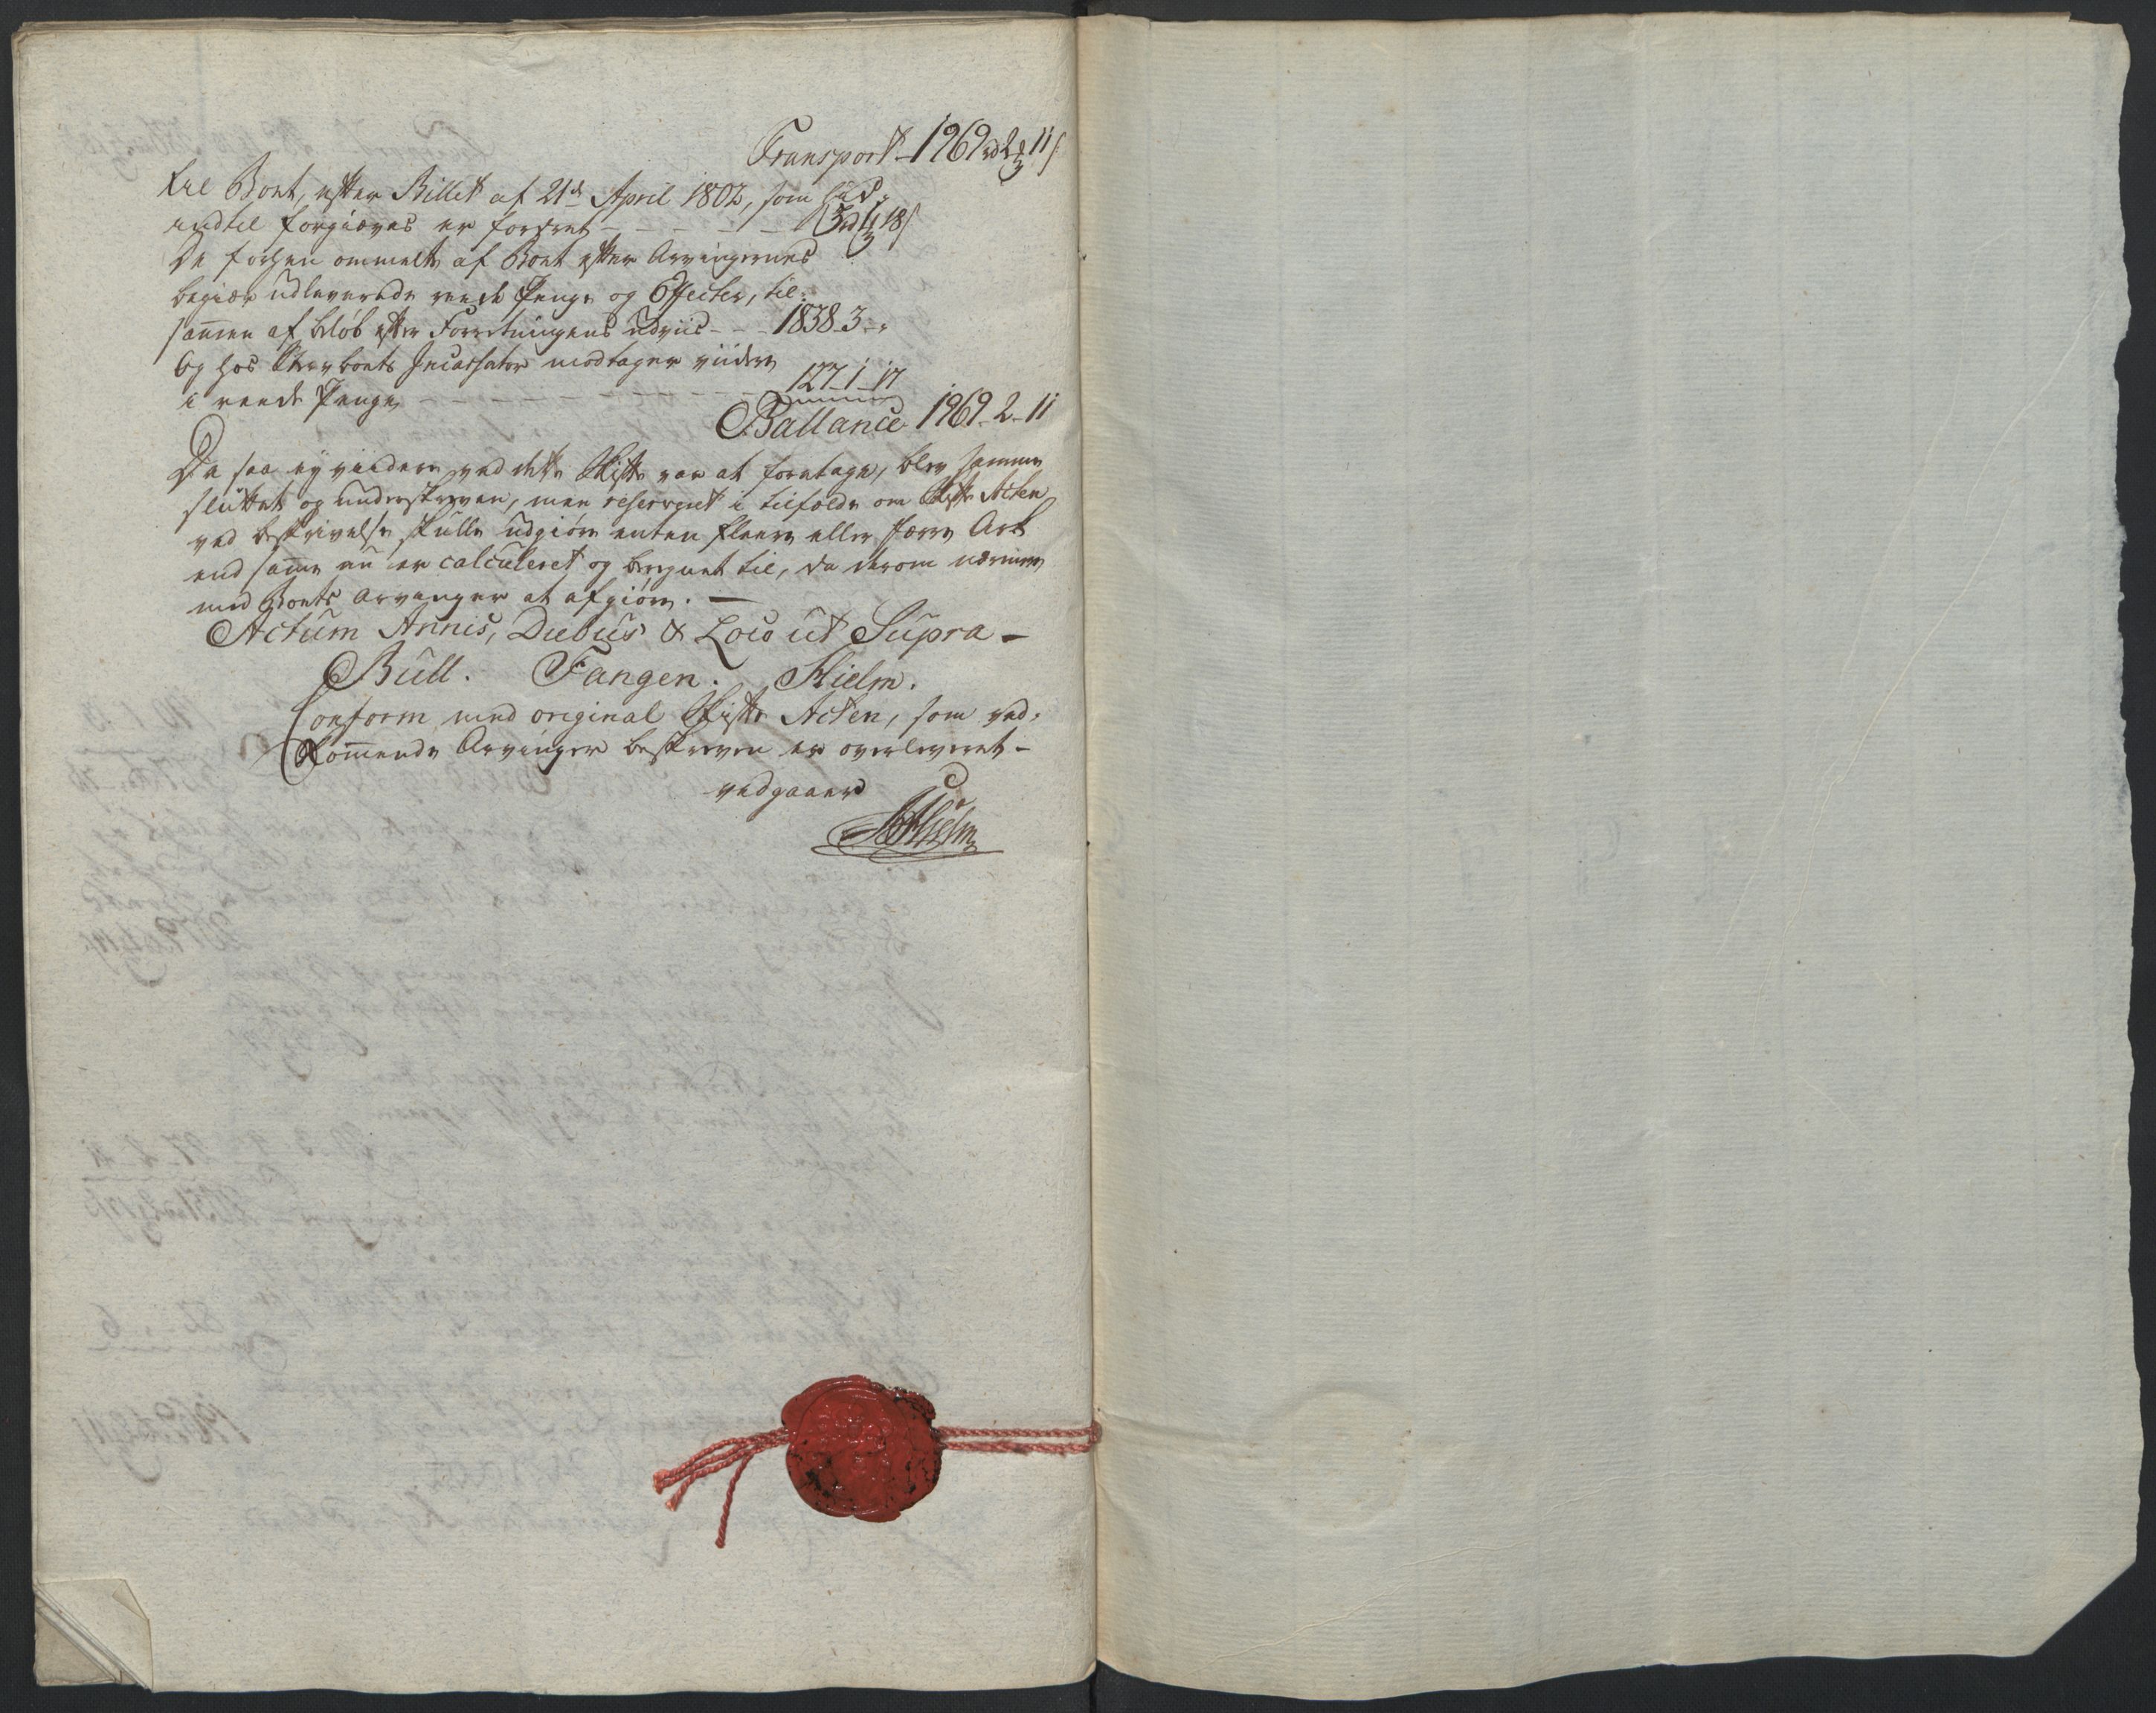 Transport - 1969 rd 2 ℳ 11 s
til Boet, efter Billet af 21de April 1802, som hid-
indtil forgiæves er fordret - - - - - 3 rd 1 ℳ 18 s
De forhen ommelte af Boet efter Arvingernes
begiær udleverede reede Penge og Effecter, til-
sam̄en af beløb efter Forretningens udviis - - - 1838 - 3 - "
Og hos Sterboets Incassator modtager viidere
i reede Penge - - - - - - - - - 127 - 1 - 17
Ballance 1969 - 2 - 11
Da saa ej viidere ved dette Skifte var at foretage, blev samme
sluttet og underskreven, men reserveret i tilfælde om Skifte Acten
ved beskrivelse skulle udgiøre enten fleere eller færre Ark
end sam̄e nu er calculeret og beregnet til, da derom nærmere
med Boets Arvinger at afgiøre. -
Actum Annis, Diebus & Loco ut Supra -
Bull. Fangen. Hielm.
Conform med original Skifte Acten, som ved-
kom̄ende Arvinger beskreven er overleveret -
vedgaaer
Hielm